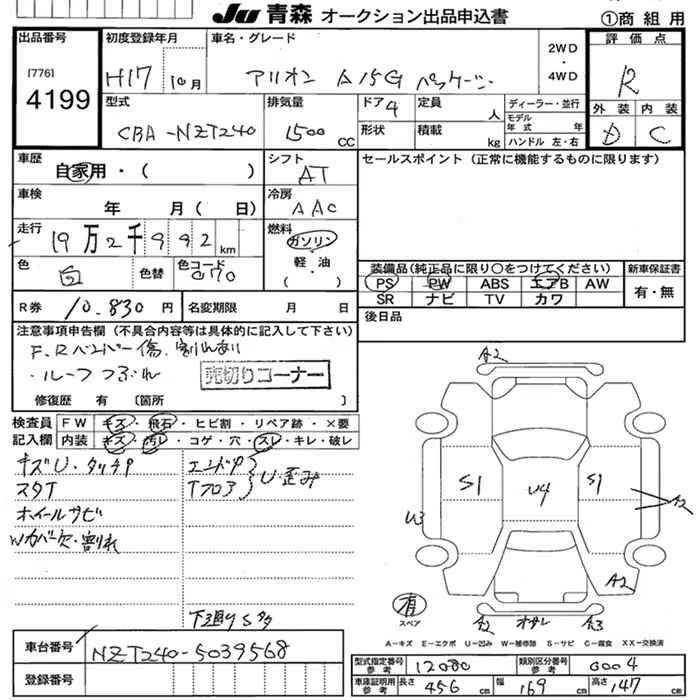 JU 青森 オークション出品申込書 ①商組用
出品番号
[776]
4199
初度登録年月
H17 10月
車名・グレード
アリオン A15G パッケージ
2WD
・
4WD
評価点
R
外装 内装
D C
型式
CBA-NZT240
排気量
1500 CC
ドア 4
定員 人
形状
積載 kg
ディーラー・並行
モデル年式 年
ハンドル 左・右
車歴
自家用・( )
シフト
AT
セールスポイント(正常に機能するものに限ります)
車検
年 月( 日)
冷房
AAC
走行
19万2千992km
燃料
ガソリン
軽・油
( )
色
白
色替
色コード
070
装備品(純正品に限り○をつけてください)
新車保証書
PS PW ABS エアB AW
有・無
SR ナビ TV カワ
R券 10.830円
名変期限 月 日
後日品
注意事項申告欄(不具合内容等は具体的に記入して下さい)
F.Rバンパー傷.割れあり
・ルーフつぶれ
売切りコーナー
修復歴 有 〔箇所 〕
検査員
記入欄
FW キズ・飛石・ヒビ割・リペア跡・×要
内装 キズ・汚レ・コゲ・穴・スレ・キレ・破レ
キズU・タッチP
エンドP
スタT
Tフロア
U・歪み
ホイールサビ
Wカバー欠・割れ
下廻りS多
A2
S1
U4
S1
A2
U3
A2
有
スペア
A2
オサレ
A3
A－キズ E－エクボ U－凹み W－補修跡 S－サビ C－腐食 XX－交換済
車台番号
NZT240-5039568
登録番号
型式指定番号
参考
12080
類別区分番号
参考
0004
車庫証明用
参考
長さ 456 cm
幅 169 cm
高さ 147 cm